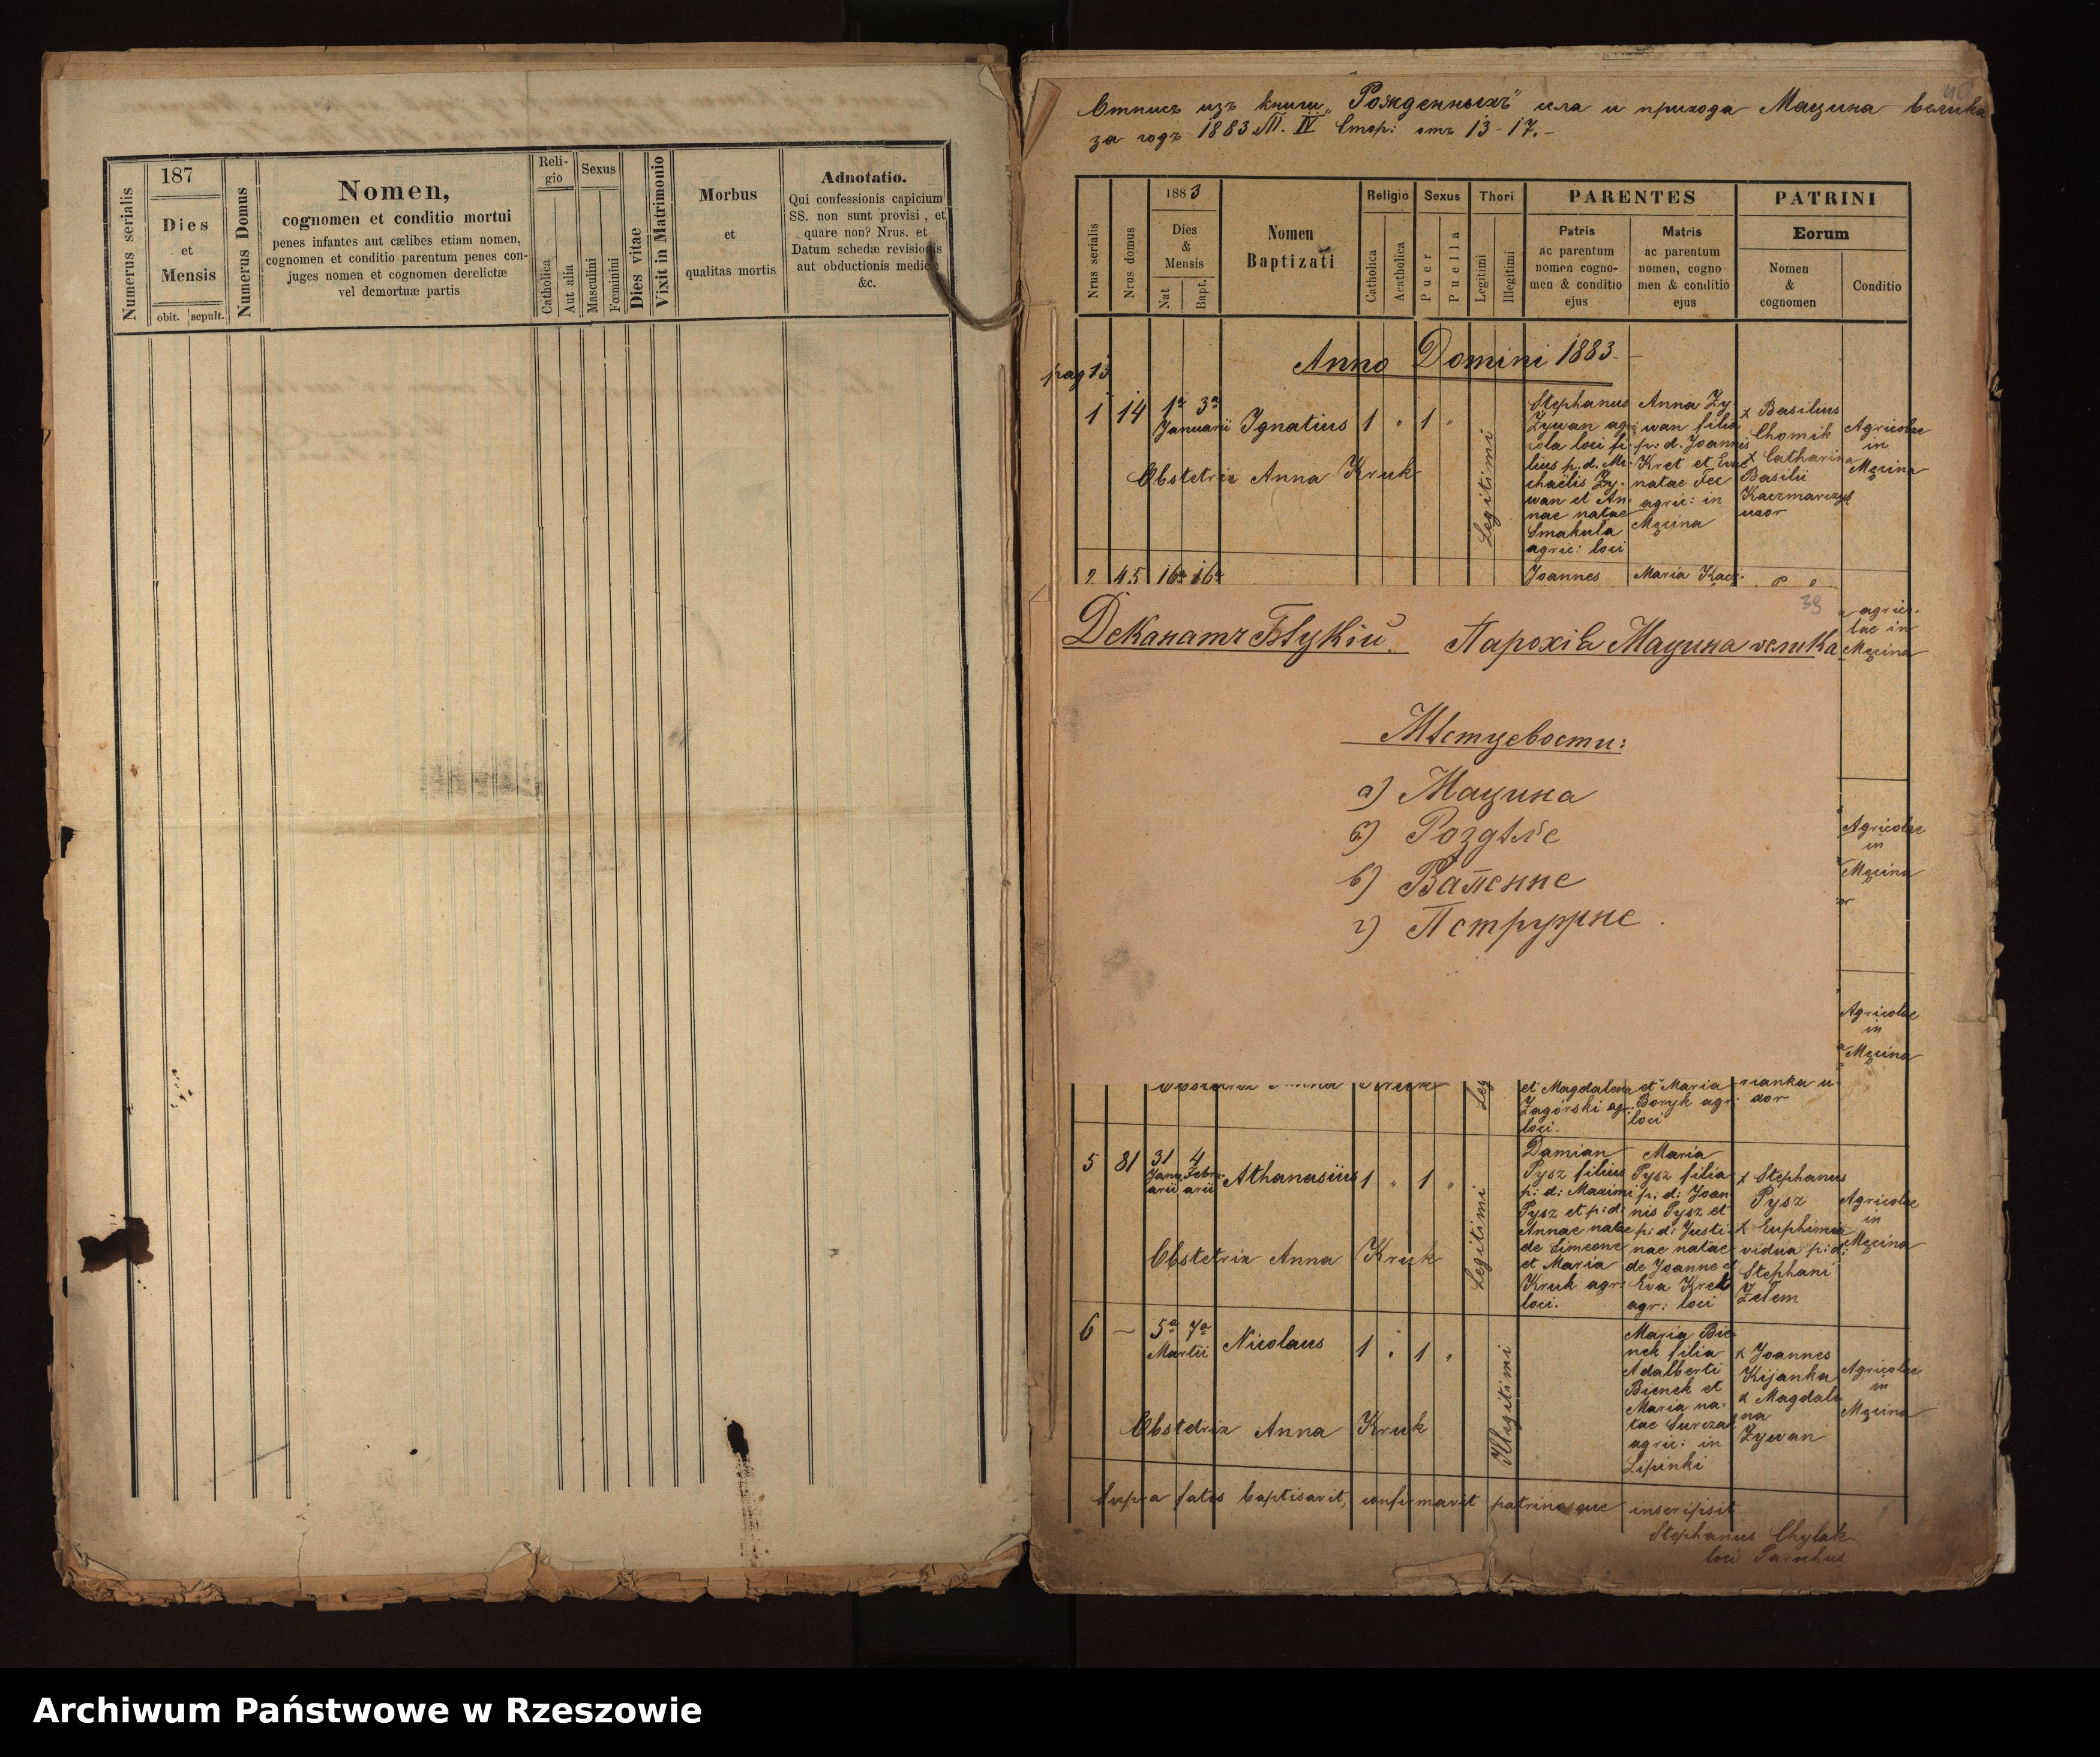 Numerus serialis
187
Dies
et
Mensis
obit. sepult.
Numerus Domus
Nomen,
cognomen et conditio mortui
penes infantes aut cælibes etiam nomen,
cognomen et conditio parentum penes con-
juges nomen et cognomen derelictæ
vel demortuæ partis
Reli-
gio
Catholica
Aut alia
Sexus
Masculini
Fœminini
Dies vitae
Vixit in Matrimonio
Morbus
et
qualitas mortis
Adnotatio.
Qui confessionis capicium
SS. non sunt provisi, et
quare non? Nrus. et
Datum schedæ revisionis
aut obductionis medicæ
&c.
Отписъ изъ книги „Рожденныхъ" села и прихода Мацина велика
за годъ 1883 Т. IV Стор: отъ 13-17.-
Nrus serialis
Nrus domus
1883
Dies
&
Mensis
Nat
Bapt.
Nomen
Baptizati
Religio
Catholica
Acatholica
Sexus
Puer
Puella
Thori
Legitimi
Illegitimi
PARENTES
Patris
ac parentum
nomen cogno-
men & conditio
ejus
Matris
ac parentum
nomen, cogno
men & conditio
ejus
PATRINI
Eorum
Nomen
&
cognomen
Conditio
Anno Domini 1883.
pag 13
1 14 1a 3a
Januarii Ignatius 1 " 1 "
Obstetrix Anna Kruk
Legitimi
Stephanus
Zywan agri-
cola loci fi-
lius p. d. Mi-
chaëlis Zy-
wan et An-
nae natae
Smakula
agric: loci
Anna Zy-
wan filia
p: d. Joannis
Kret et Evae
natae Fec
agric: in
Męcina
x Basilius
Chomik
x Catharina
Basilii
Kaczmarczyk
uxor
Agricolae
in
Męcina
2 45 16a 16a
Joannes
Maria Kacz-
39
agrico-
lae in
Męcina
Деканатъ Бѣцкій. Парохія Мацина велика
Мѣстцевости:
а) Мацина
б) Роздѣлє
в) Вапєннє
г) Пєтружнє.
Agricolae
in
Męcina
Agricolae
in
Męcina
Obstetrix Anna Kruk
Leg
et Magdalena
Zagórski agr:
loci.
et Maria
Boryk agr:
loci
rianka u-
xor
5 81 31 4
Janu- Febru-
arii arii
Athanasius 1 " 1 "
Obstetrix Anna Kruk
Legitimi
Damian
Pysz filius
p: d: Maximi
Pysz et p: d:
Annae natae
de Simeone
et Maria
Kruk agr:
loci.
Maria
Pysz filia
p: d: Joan-
nis Pysz et
p: d: Justi-
nae natae
de Joanne et
Eva Kret
agr: loci
x Stephanus
Pysz
x Euphimia
vidua p: d:
Stephani
Zelem
Agricolae
in
Męcina
6 — 5a 7a
Martii
Nicolaus 1 " 1 "
Obstetrix Anna Kruk
Illegitimi
Maria Bie-
nek filia
Adalberti
Bienek et
Maria na-
tae Surcza
agric: in
Lipinki
x Joannes
Kijanka
x Magdale
na
Zywan
Agricolae
in
Męcina
Supra fatos baptisavit, confirmavit patrinosque inscripsit
Stephanus Chylak
loci Parochus
Archiwum Państwowe w Rzeszowie